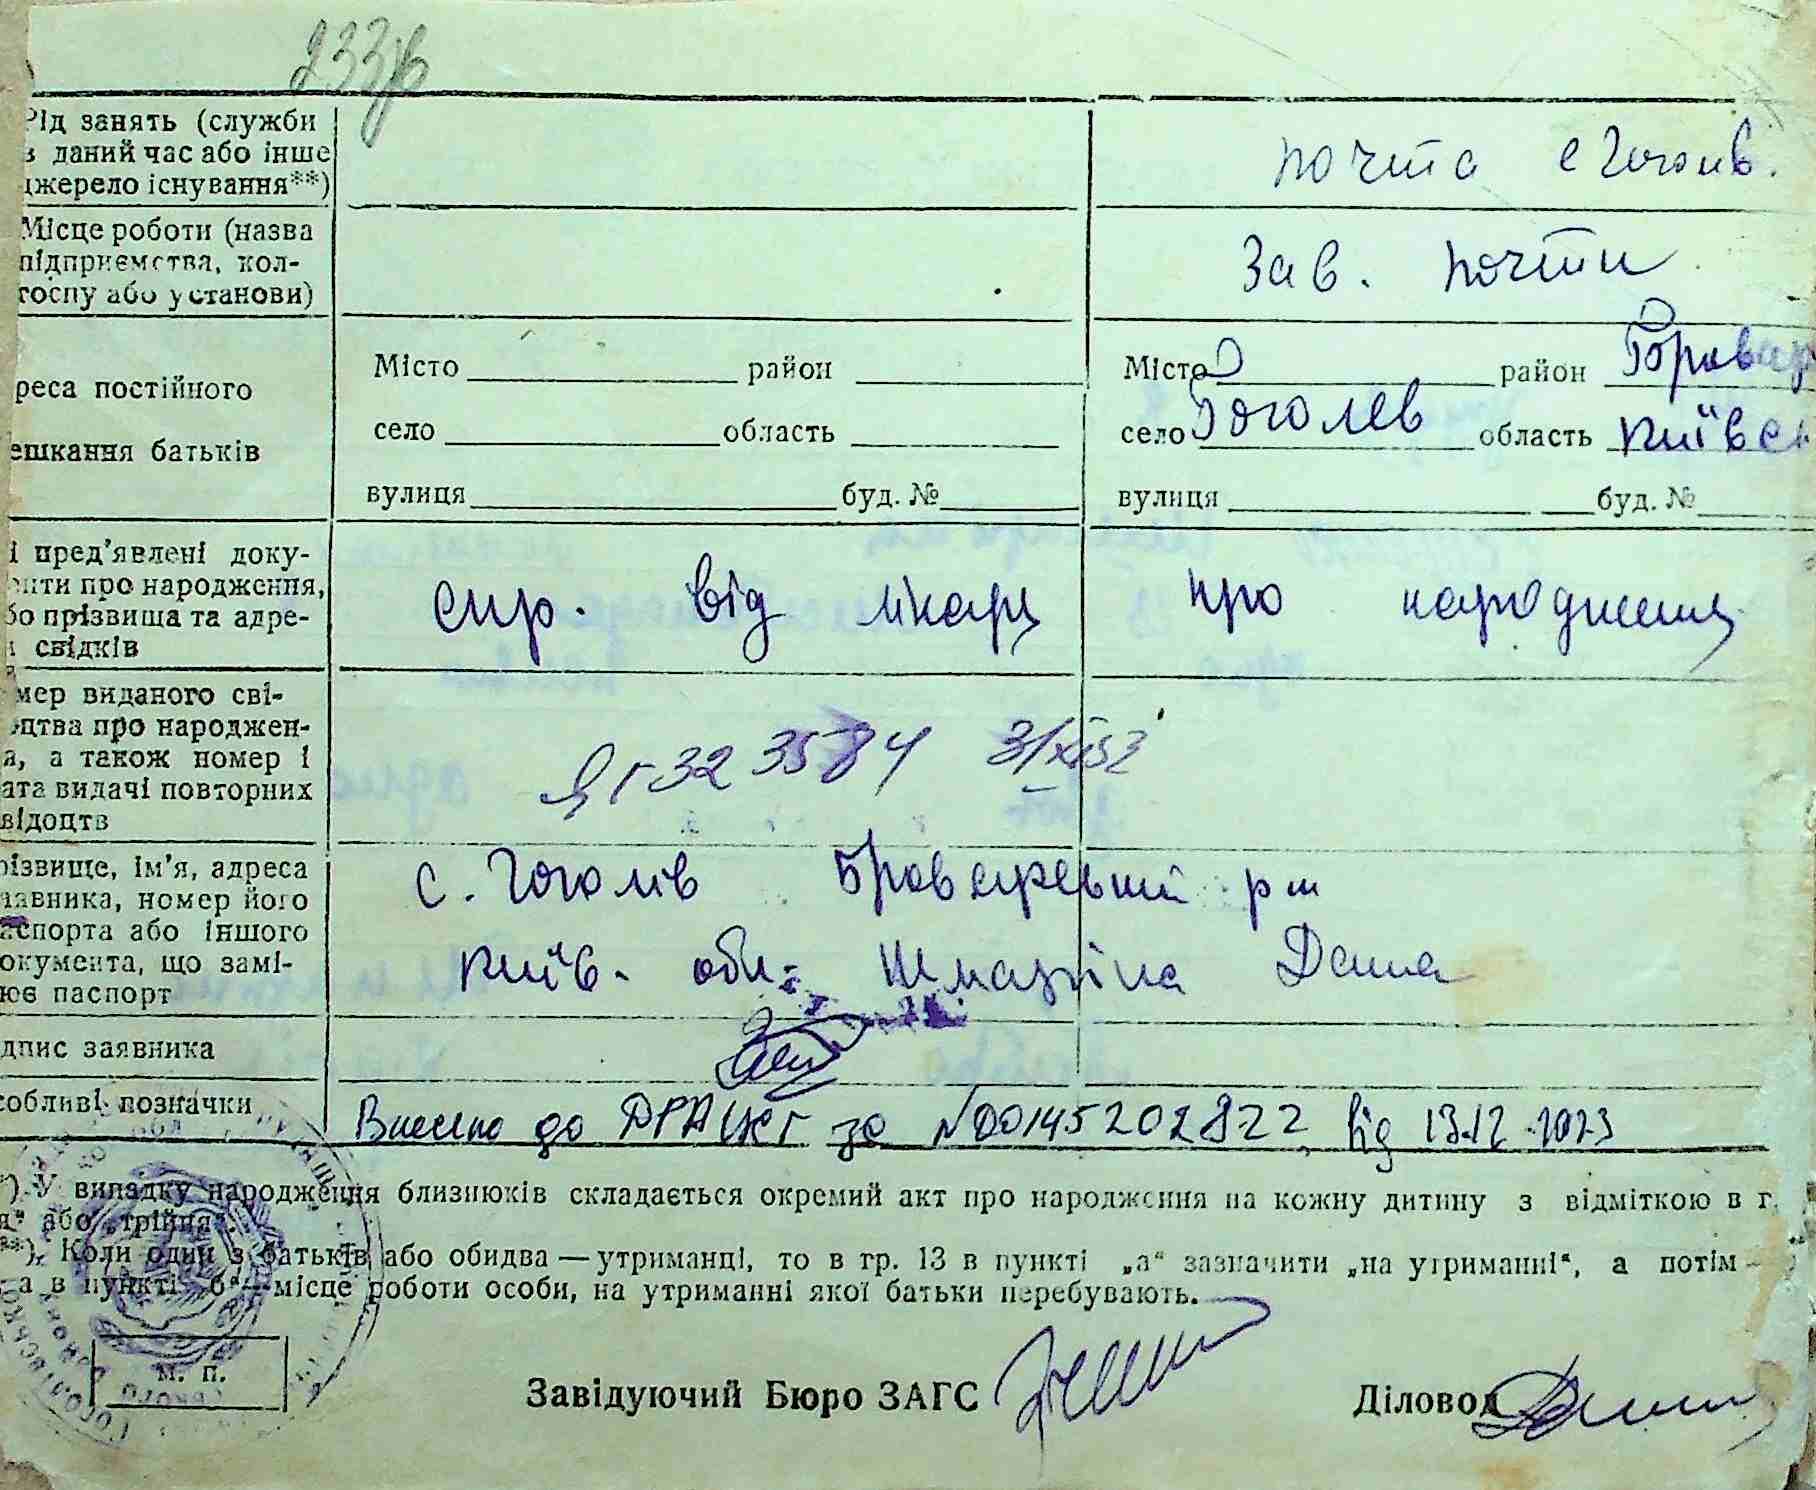 Рід занять (служби
в даний час або інше
джерело існування**)
почта с Гоголів.
Місце роботи (назва
підприємства, кол-
госпу або установи)
Зав. почти
реса постійного
ешкання батьків
Місто район
село область
вулиця буд. №
Місто район Бровар
село Гоголев область Київсь
вулиця буд. №
і пред'явлені доку-
нти про народження,
бо прізвища та адре-
и свідків
спр. від лікаря про народження
мер виданого сві-
оцтва про народжен-
я, а також номер і
ата видачі повторних
відоцтв
323584 31/XII 53
різвище, ім'я, адреса
явника, номер його
аспорта або іншого
окумента, що замі-
ює паспорт
с. Гоголів Броварський р-н
Київ. обл. Даша
дпис заявника
собливі позначки
Внесено до ДРАЦСГ за №00145202822 від 13.12.2023
*) У випадку народження близнюків складається окремий акт про народження на кожну дитину з відміткою в г.
я" або „трійня".
**). Коли один з батьків або обидва — утриманці, то в гр. 13 в пункті „а" зазначити „на утриманні", а потім —
а в пункті „б" — місце роботи особи, на утриманні якої батьки перебувають.
М. П.
Завідуючий Бюро ЗАГС
Діловод